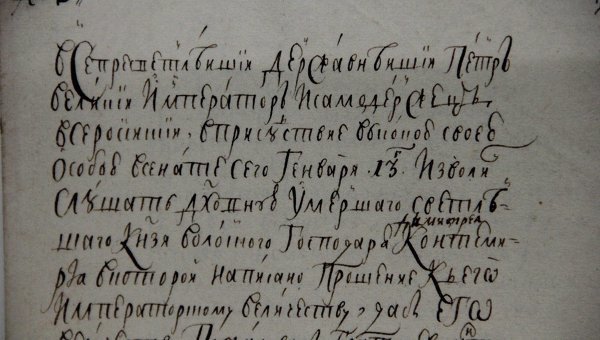 всепресветлѣишіи державнѣишіи Пётръ
великіи Императоръ Исамодержецъ
всеросиискіи, вприсутствие высокое своеѡ
особоѡ всенате сего Генваря 13г Изволи
слушать духовную Умершаго светлѣ-
шаго Князя волоского Господаря Димитрея Контеми-
ра вкоторой написано Прошение Къего
Императорскому величеству, дабы Егѡ